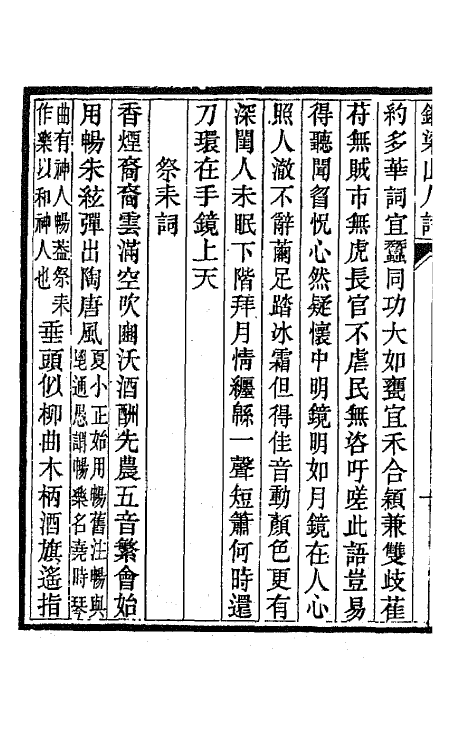 約多華詞宜蠶同功大如甕宜禾合穎兼雙歧萑
苻無賊市無虎長官不虐民無咨吁嗟此語豈易
得聽聞翕怳心然疑懷中明鏡明如月鏡在人心
照人澈不辭繭足踏冰霜但得佳音動顏色更有
深閨人未眠下階拜月情纏緜一聲短簫何時還
刀環在手鏡上天
祭耒詞
香煙裔裔雲滿空吹豳沃酒酬先農五音繁會始
用暢朱絃彈出陶唐風夏小正始用暢舊注暢與
鬯通愚謂暢樂名堯時琴
曲有神人暢葢祭耒
作樂以和神人也垂頭似柳曲木柄酒旗遙指